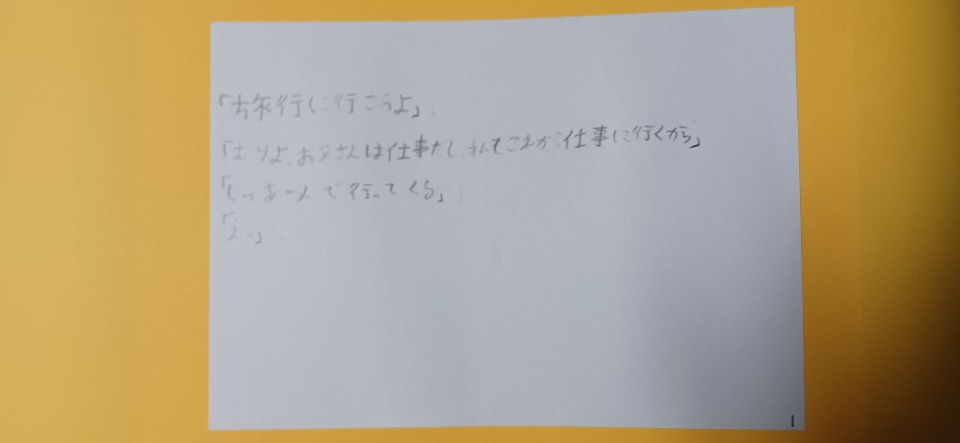 「旅行に行こうよ」
「ムリよ、お父さんは仕事だし、私もこれから仕事に行くから」
「じゃあ一人で行ってくる」
「え、」